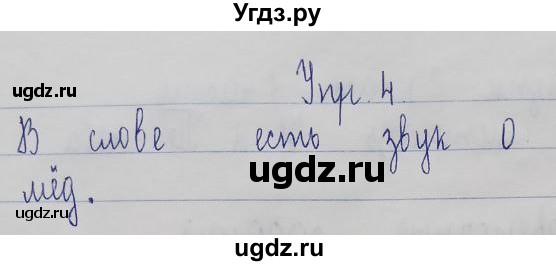 Угдз.ру
Упр. 4.
ugdz.ru
В слове есть звук О
ugdz.ru
ugdz.ru
мёд.
ugdz.ru
ugdz.ru
ugdz.ru